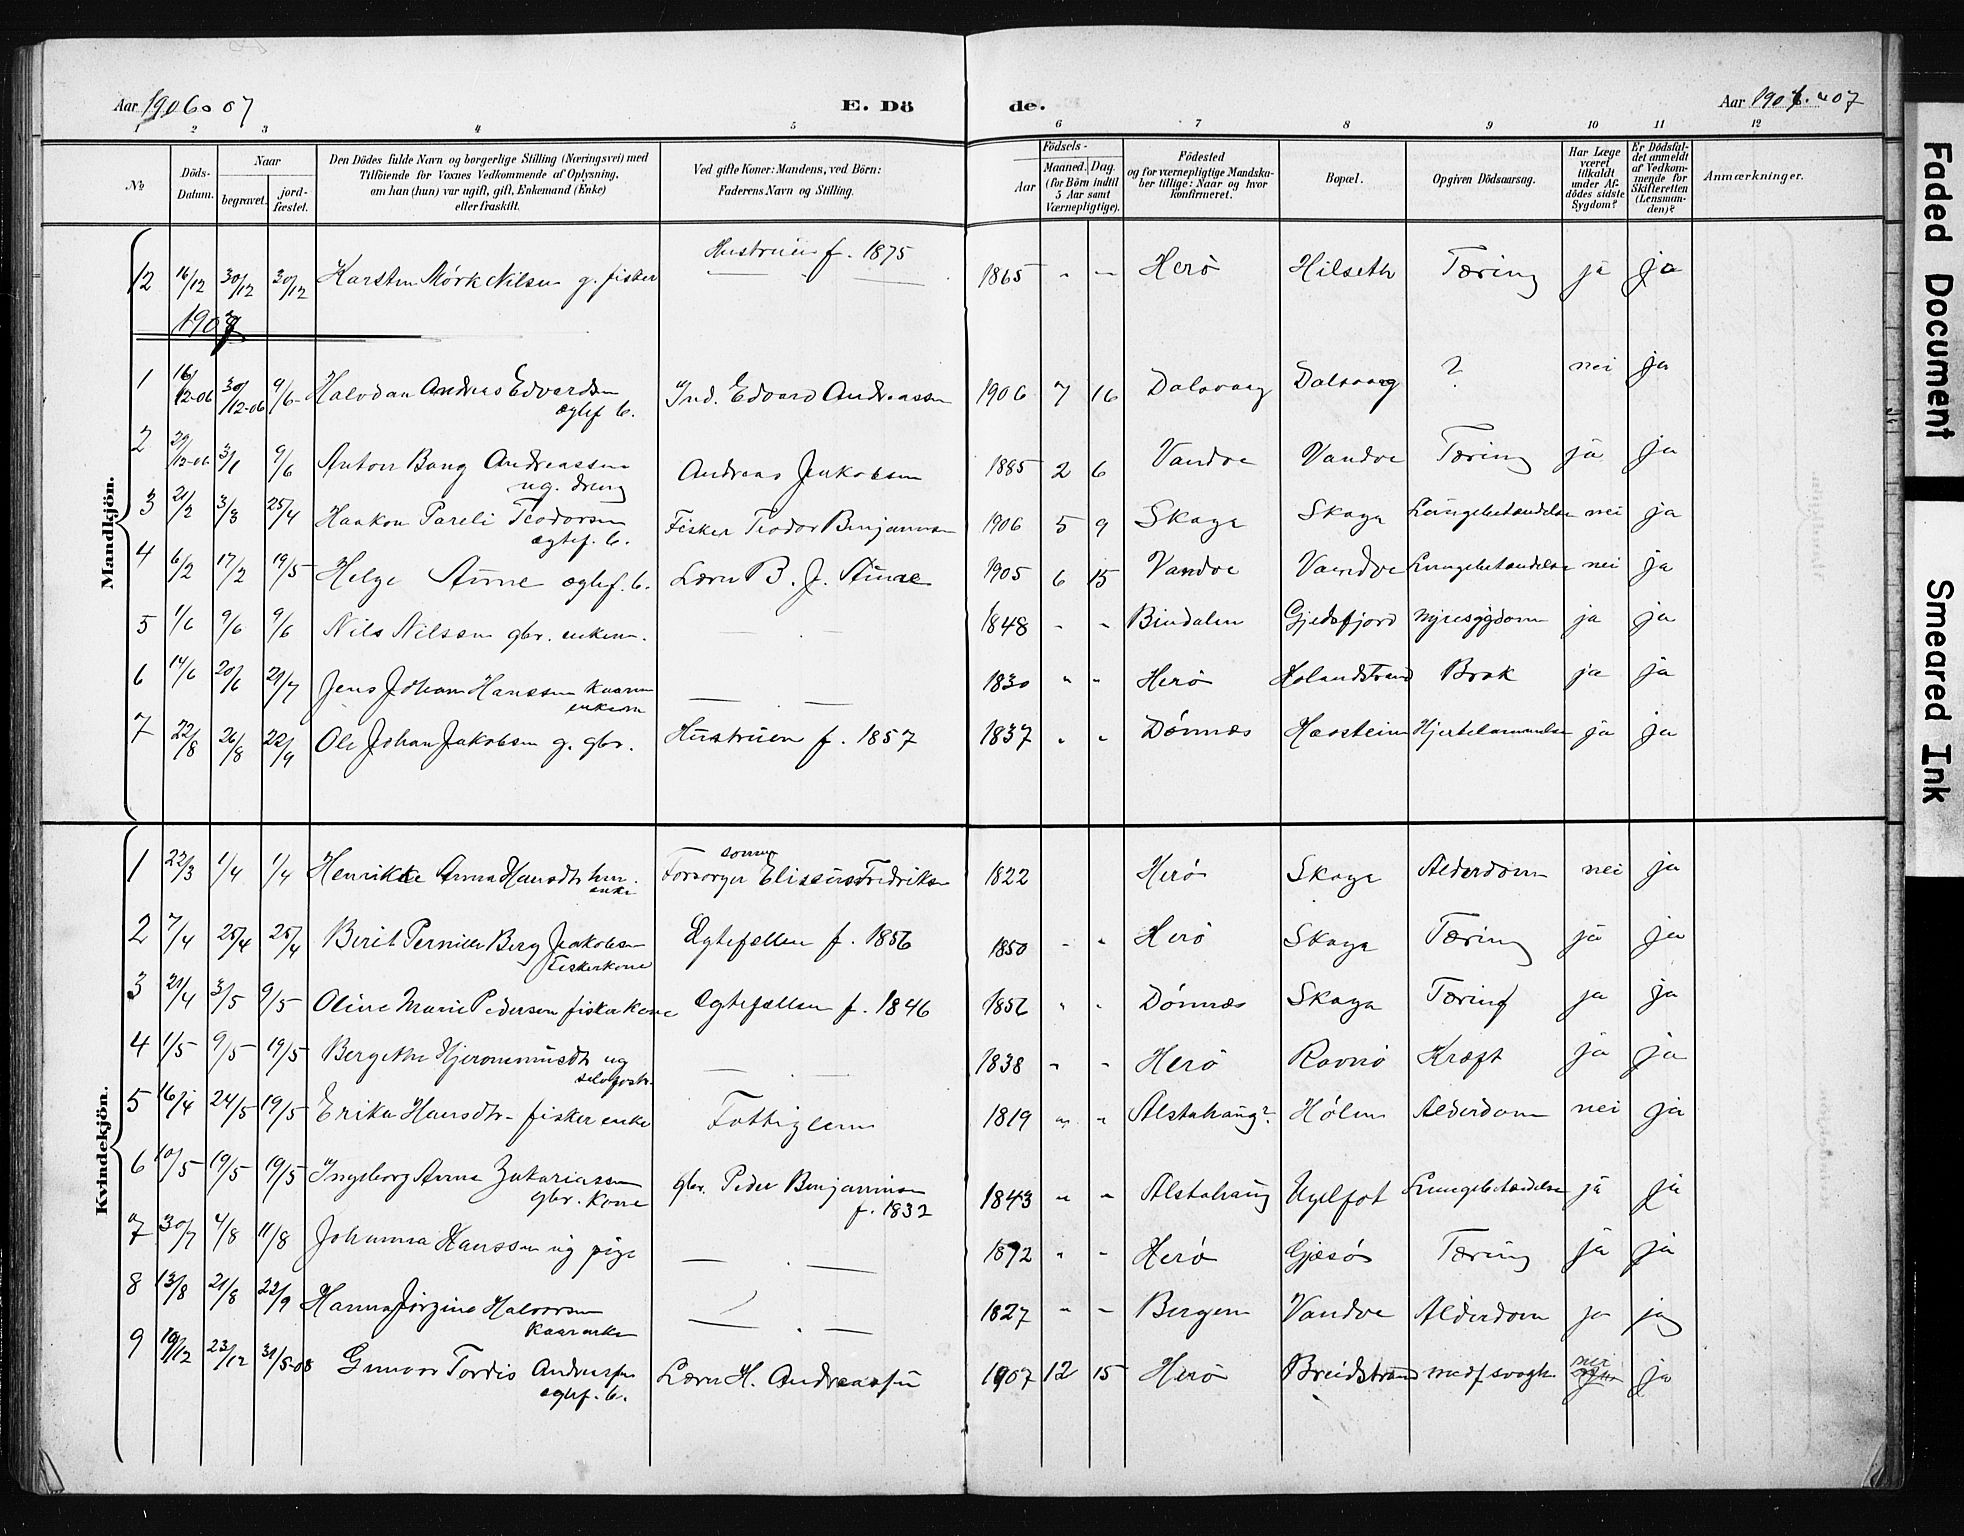 Aar 1906 o 07 E. Dö de. Aar 1906 " 07
1 2 3 4 5 6 7 8 9 10 11 12
№
Döds-Datum.
Naar
begravet. jordfæstet.
Den Dödes fulde Navn og borgerlige Stilling (Næringsvei) med
Tilföiende for Voxnes Vedkommende af Oplysning,
om han (hun) var ugift, gift, Enkemand (Enke)
eller fraskilt.
Ved gifte Koner: Mandens, ved Börn:
Faderens Navn og Stilling.
Födsels-
Aar Maaned. Dag.
(for Börn indtil
5 Aar samt
Værnepligtige).
Födested
og for værnepligtige Mandskaber tillige: Naar og hvor
konfirmeret.
Bopæl.
Opgiven Dödsaarsag.
Har Læge
været
tilkaldt
under Afdödes sidste
Sygdom?
Er Dödsfaldet anmeldt
af Vedkommende for
Skifteretten
(Lensmanden)?
Anmærkninger.
Mandkjön.
Hustruen f. 1875
12 16/12 30/12 30/12 Karsten Mørk Nilsen g. fisker — — 1865 " — Herö Hilseth Tæring ja ja
1907
1 16/12-06 30/12-06 9/6 Halvdan Andreas Edvardsen Ind. Edvard Andreassen 1906 7 16 Dalsvaag Dalsvaag ? nei ja
ægtef. b.
2 29/12-06 3/1 9/6 Anton Bang Andreassen Andreas Jakobsen 1885 2 6 Vandve Vandve Tæring ja ja
ug. dreng
3 21/2 3/3 25/4 Haakon Pareli Teodorsen Fisker Teodor Benjaminsen 1906 5 9 Skaga Skaga Lungebetændelse nei ja
ægtef. b.
4 6/2 17/2 19/5 Helge Sture ægtef. b. Lærer B. J. Sture 1905 6 15 Vandve Vandve Lungebetændelse nei ja
5 1/6 9/6 9/6 Nils Nilsen gbr. enkem. — . — 1848 " " Bindalen Gjedsfjord nyresygdom ja ja
6 14/6 20/6 29/7 Jens Johan Hanssen kaarm — — 1830 " " Herö Holandstrand Brok ja ja
enkem
7 22/8 26/8 22/9 Ole Johan Jakobsen g. gbr. Hustruen f. 1857 1837 " " Dönnæs Hæstein Hjertelammelse ja ja
Kvindekjön.
sönnen
1 22/3 1/4 1/4 Henrikke Anna Hansdtr Forsorger Eliseus Fredriksen 1822 Herö Skaga Alderdom nei ja
enke
2 7/4 25/4 25/4 Berit Pernille Berg Jakobsen Ægtefællen f. 1856 1850 " " Herö Skaga Tæring ja ja
Fiskerkone
3 21/4 3/5 9/5 Oline Marie Pedersen fisker kone Ægtefællen f. 1846 1856 " " Dönnæs Skaga Tæring ja ja
4 1/5 9/5 19/5 Bergette Hjeronimusdtr ug — . — 1838 " " Herö Ravnö Kræft ja ja
5 16/4 24/5 19/5 Erika Hansdtr fisker enke Fattiglem 1819 " " Alstahaug? Hölen Alderdom nei ja
6 10/5 19/5 19/5 Ingeborg Anna Zakariassen gbr. Peder Benjaminsen 1843 " " Alstahaug Uglfot Lungebetændelse ja ja
gbr. kone f. 1832
7 30/7 4/8 11/8 Johanna Hanssen ug pige — . — 1892 " " Herö Gjæsö Tæring ja ja
8 13/8 21/8 22/9 Hanna Jörgine Halvorsen — . — 1827 " " Bergen Vandve Alderdom ja ja
Kaarenke
9 19/12 23/12 31/5-08 Gunvor Tordis Andreassen Lærer H. Andreassen 1907 12 15 Herö Breidstrand medf svaghed nei ja
ægtef. b.
Faded Document
Smeared Ink